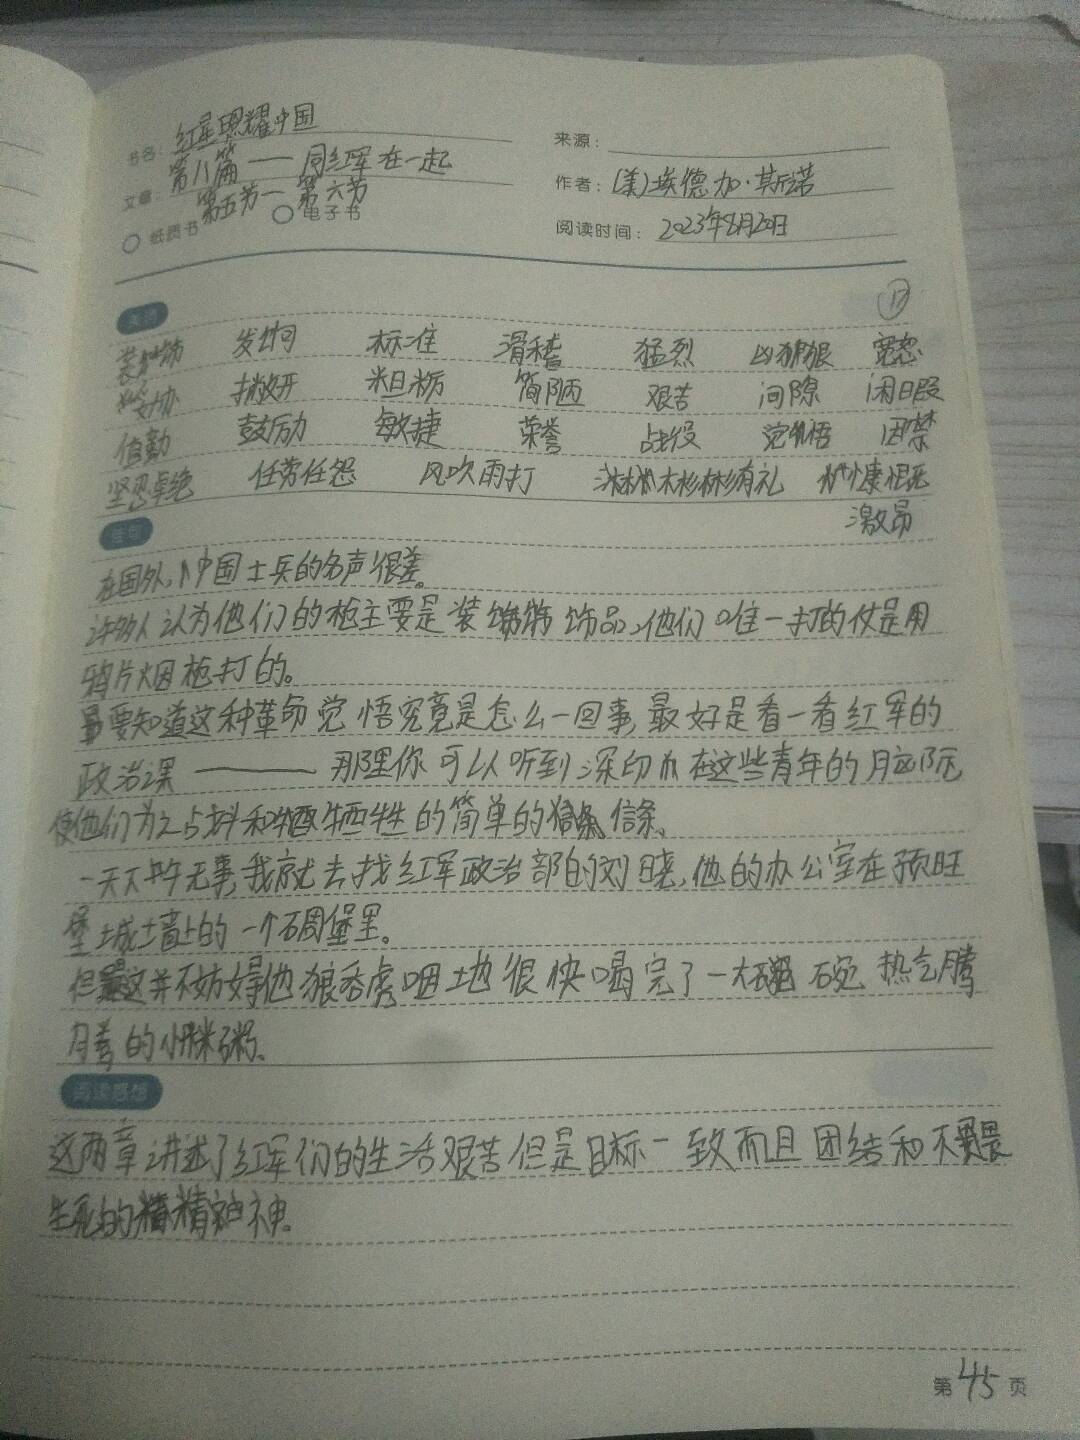 书名：红星照耀中国
来源：
文章：第八篇——同红军在一起
作者：(美)埃德加·斯诺
第五节—第六节
纸质书 电子书
阅读时间：2023年8月20日
美词
⑰
装饰 发饷 标准 滑稽 猛烈 凶狠 宽恕
妥协 粗粝 简陋 艰苦 间隙 闲暇
值勤 鼓励 敏捷 荣誉 战役 觉悟 囚禁
坚忍卓绝 任劳任怨 风吹雨打 彬彬有礼 慷慨
激昂
佳句
在国外，中国士兵的名声很差。
许多人认为他们的枪主要是装饰品，他们唯一打的仗是用
鸦片烟枪打的。
要知道这种革命觉悟究竟是怎么一回事，最好是看一看红军的
政治课——那里你可以听到深印在这些青年的脑际
使他们为之战斗和牺牲的简单的信条。
一天下午无事，我就去找红军政治部的刘晓，他的办公室在预旺
堡城墙上的一个碉堡里。
但这并不妨碍他狼吞虎咽地很快喝完了一大碗热气腾
腾的小米粥。
阅读感想
这两章讲述了红军们的生活艰苦但是目标一致而且团结和不畏
生死的精神。
第45页